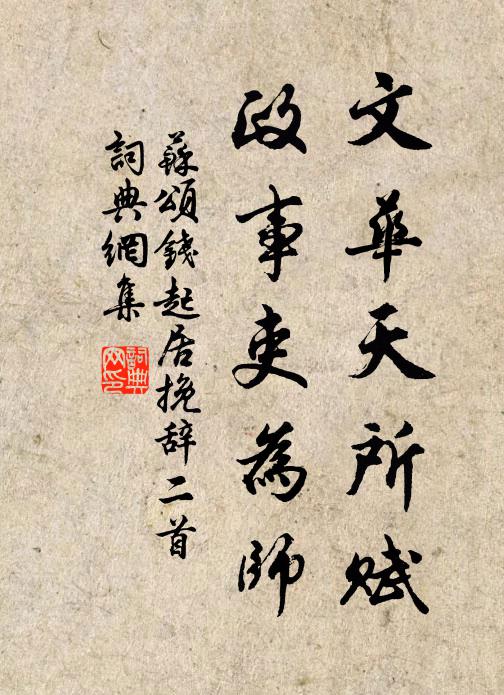 文華天所赋
政事吏為師
蘇頌錢起居挽辞二首
詞典網集
詞典網印